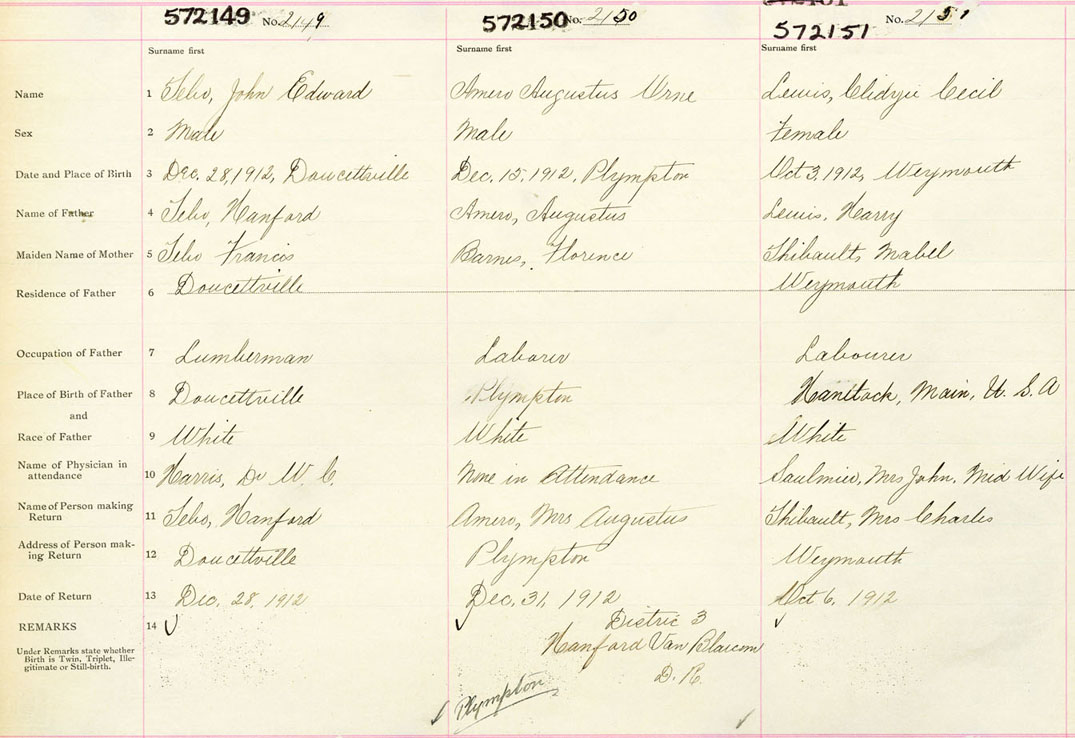 572149 No. 2149 572150 No. 2150 572151 No. 2151
Surname first Surname first Surname first
Name 1 Tebo, John Edward Amero Augustus Orne Lewis, Cecil
Sex 2 Male Male Female
Date and Place of Birth 3 Dec. 28, 1912, Doucettville Dec. 15, 1912, Plympton Oct 3, 1912, Weymouth
Name of Father 4 Tebo, Hanford Amero, Augustus Lewis, Harry
Maiden Name of Mother 5 Tebo Francis Barnes, Florence Thibault, Mabel
Residence of Father 6 Doucettville Weymouth
Occupation of Father 7 Lumberman Laborer Labourer
Place of Birth of Father 8 Doucettville Plympton Main, U. S. A
and
Race of Father 9 White White White
Name of Physician in
attendance 10 Harris, Dr W. C. None in Attendance Mrs John, Mid Wife
Name of Person making
Return 11 Tebo, Hanford Amero, Mrs Augustus Thibault, Mrs Charles
Address of Person mak-
ing Return 12 Doucettville Plympton Weymouth
Date of Return 13 Dec. 28, 1912 Dec. 31, 1912 Oct 6, 1912
REMARKS 14 Distric 3
Under Remarks state whether
Birth is Twin, Triplet, Ille-
gitimate or Still-birth.
Hanford Van Blarcom
D. R.
Plympton